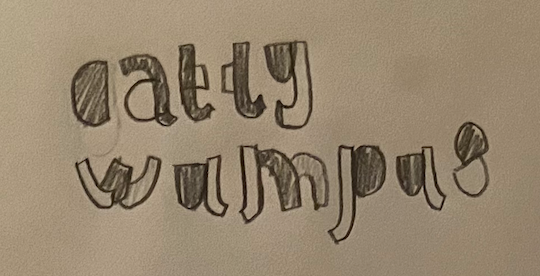 catty
wampus